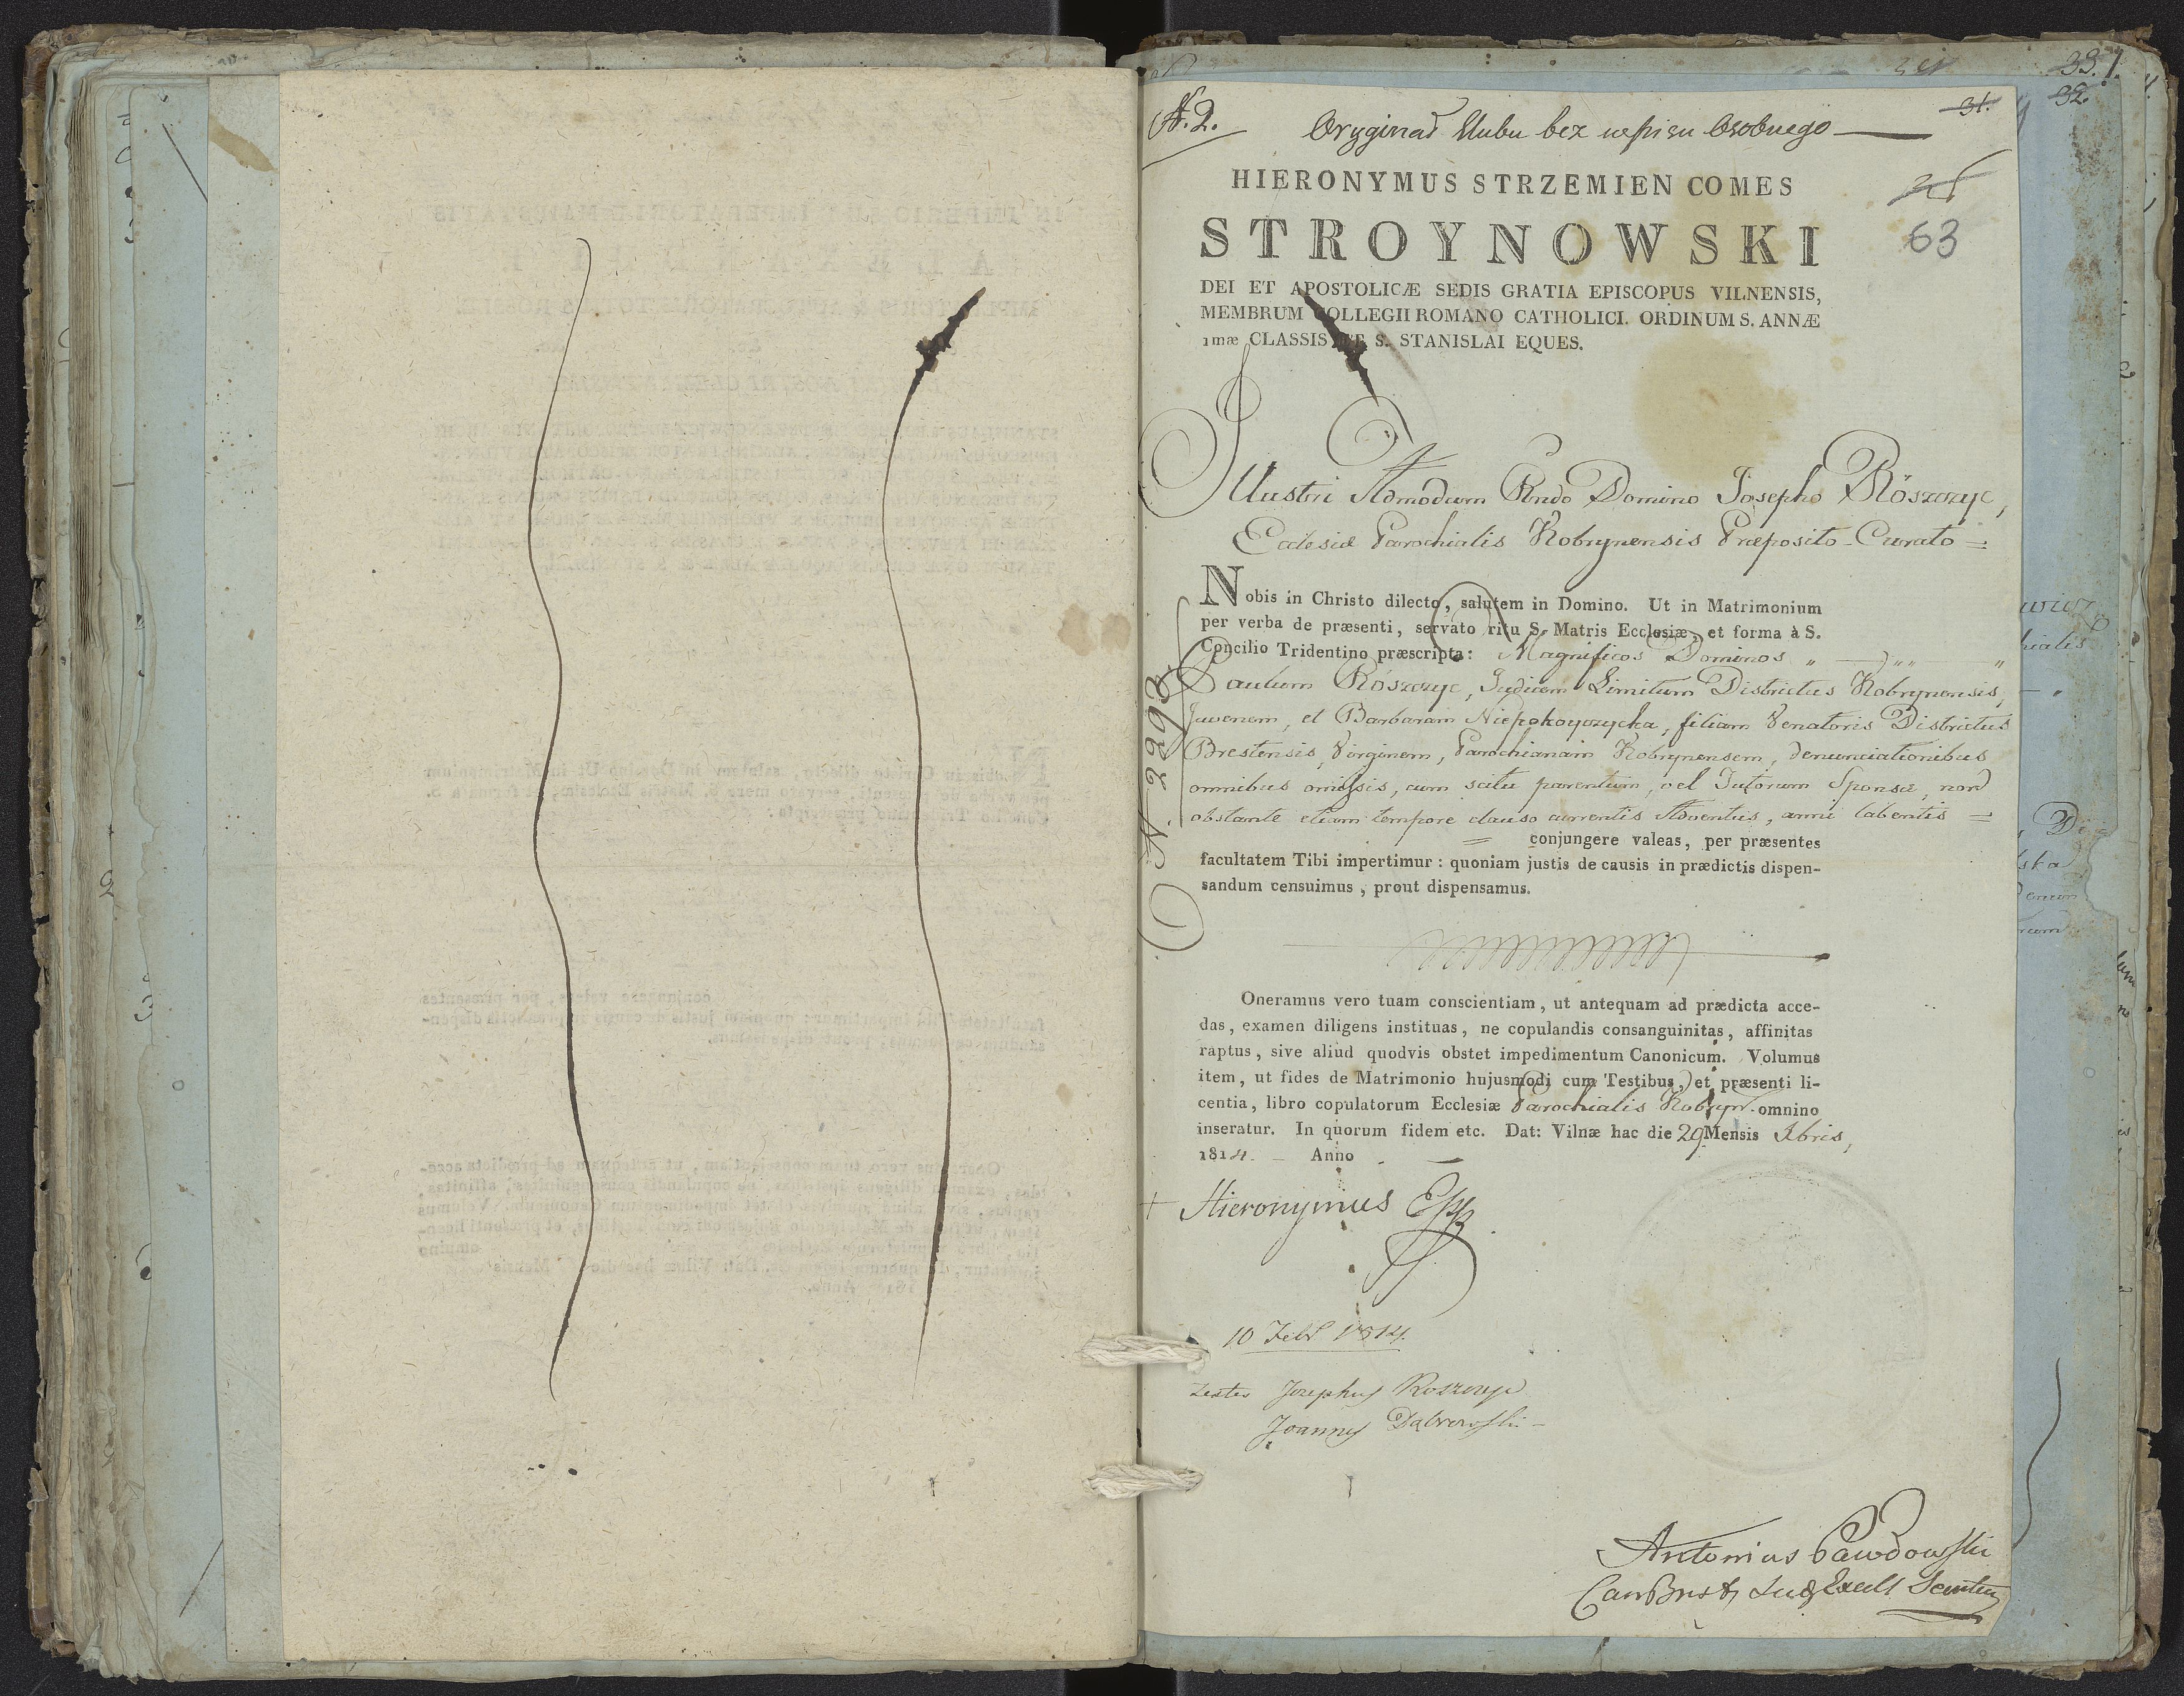 N. 2.
Oryginał Ślubu bez wpisu Osobnego
31.
32.
33.
63
HIERONYMUS STRZEMIEN COMES
STROYNOWSKI
DEI ET APOSTOLICÆ SEDIS GRATIA EPISCOPUS VILNENSIS,
MEMBRUM COLLEGII ROMANO CATHOLICI. ORDINUM S. ANNÆ
1mæ CLASSIS ET S. STANISLAI EQUES.
Illustri Admodum Rndo Domino Josepho Rószczyc,
Ecclesiæ Parochialis Kobrynensis Præposito-Curato =
Nobis in Christo dilecto, salutem in Domino. Ut in Matrimonium
per verba de præsenti, servato ritu S. Matris Ecclesiæ, et forma à S.
Concilio Tridentino præscripta: Magnificos Dominos
Paulum Rószczyc, Judicem Limitum Districtus Kobrynensis,
Juvenem, et Barbaram Niepokoyczycka, filiam Venatoris Districtus
Brestensis, Virginem, Parochianam Kobrynensem, denunciationibus
omnibus omissis, cum scitu parentum, vel Tutorum Sponsæ, non
obstante etiam tempore clauso currentis Adventus, anni labentis =
= conjungere valeas, per præsentes
facultatem Tibi impertimur: quoniam justis de causis in prædictis dispen-
sandum censuimus, prout dispensamus.
N. 2298.
Oneramus vero tuam conscientiam, ut antequam ad prædicta acce-
das, examen diligens instituas, ne copulandis consanguinitas, affinitas
raptus, sive aliud quodvis obstet impedimentum Canonicum. Volumus
item, ut fides de Matrimonio hujusmodi cum Testibus, et præsenti li-
centia, libro copulatorum Ecclesiæ Parochialis Kobryn. omnino
inseratur. In quorum fidem etc. Dat: Vilnæ hac die 29 Mensis Xbris,
1814. Anno
+ Hieronymus Epp
10 Febr 1814.
Testes Josephus Roszczyc
Joannes Dąbrowski
Antonius Pawłowski